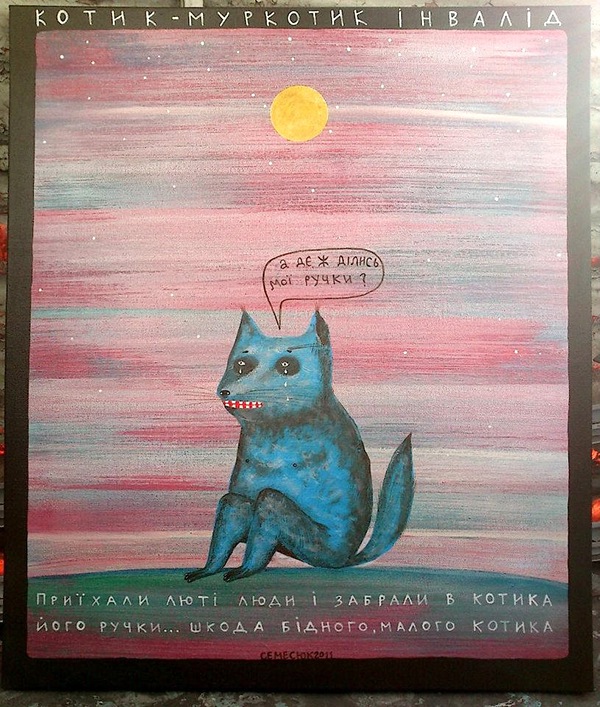 КОТИК-МУРКОТИК ІНВАЛІД
а де ж ділись
мої ручки?
Приїхали люті люди і забрали в котика
його ручки... шкода бідного, малого котика
СЕМЕСЮК2011